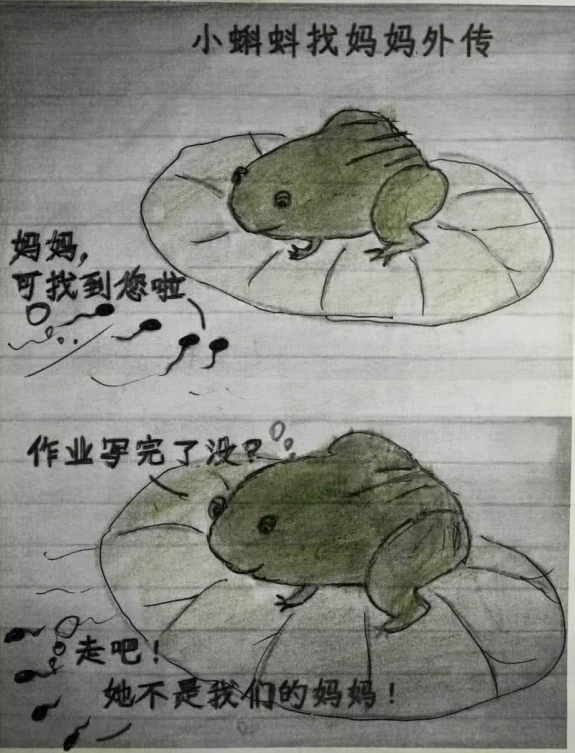 小蝌蚪找妈妈外传
妈妈，
可找到您啦
作业写完了没？
走吧！
她不是我们的妈妈！